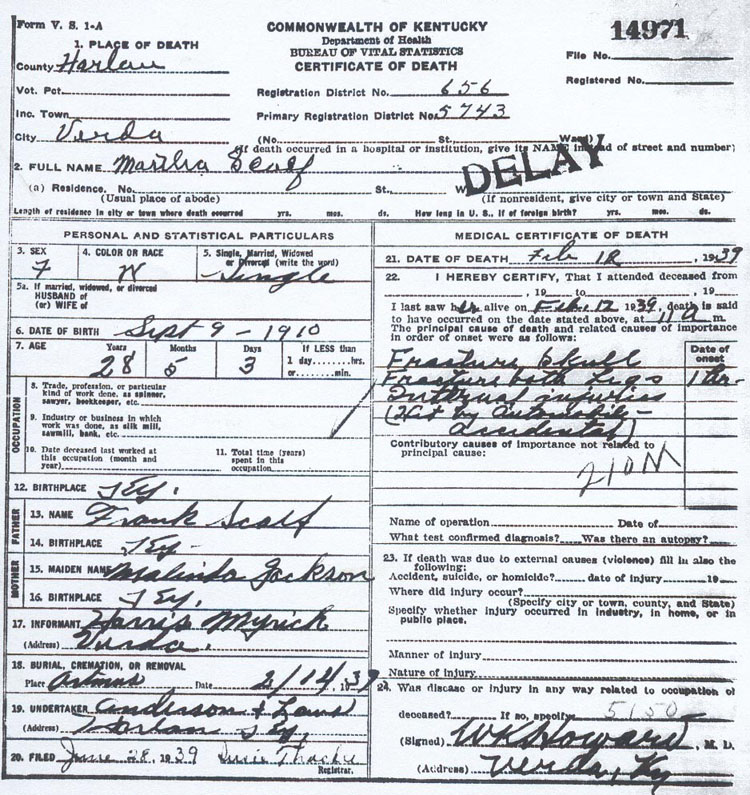 Form V. S. 1-A
COMMONWEALTH OF KENTUCKY
Department of Health
BUREAU OF VITAL STATISTICS
CERTIFICATE OF DEATH
14971
File No.
Registered No.
1. PLACE OF DEATH
County Harlan
Vot. Pct.
Inc. Town
City Verda
Registration District No. 656
Primary Registration District No. 5743
(No. St., Ward)
(If death occurred in a hospital or institution, give its NAME instead of street and number)
DELAY
2. FULL NAME Martha Scalf
(a) Residence. No. St., W
(Usual place of abode)
(If nonresident, give city or town and State)
Length of residence in city or town where death occurred yrs. mos. ds. How long in U. S., if of foreign birth? yrs. mos. ds.
PERSONAL AND STATISTICAL PARTICULARS
3. SEX F
4. COLOR OR RACE W
5. Single, Married, Widowed or Divorced (write the word)
Single
5a. If married, widowed, or divorced
HUSBAND of
(or) WIFE of
6. DATE OF BIRTH Sept 9 - 1910
7. AGE Years Months Days If LESS than
28 5 3 1 day......hrs.
or......min.
OCCUPATION
8. Trade, profession, or particular
kind of work done, as spinner,
sawyer, bookkeeper, etc.
9. Industry or business in which
work was done, as silk mill,
sawmill, bank, etc.
10. Date deceased last worked at
this occupation (month and
year)
11. Total time (years)
spent in this
occupation
12. BIRTHPLACE Ky.
FATHER
13. NAME Frank Scalf
14. BIRTHPLACE Ky
MOTHER
15. MAIDEN NAME Malinda Jackson
16. BIRTHPLACE Ky.
17. INFORMANT Harris Myrick
(Address) Verda.
18. BURIAL, CREMATION, OR REMOVAL
Place Artmus Date 2/14/1939
19. UNDERTAKER Anderson & Laws
(Address) Harlan Ky.
20. FILED June 28, 1939
Registrar.
MEDICAL CERTIFICATE OF DEATH
21. DATE OF DEATH Feb 12, 1939
22. I HEREBY CERTIFY, That I attended deceased from
, 19 to , 19
I last saw her alive on Feb. 12 1939, death is said
to have occurred on the date stated above, at 11 a m.
The principal cause of death and related causes of importance
in order of onset were as follows:
Date of
onset
Fracture Skull
Fracture both Legs 1 hr-
Internal injuries
(Hit by Automobile-
accidental)
Contributory causes of importance not related to
principal cause:
210M
Name of operation Date of
What test confirmed diagnosis? Was there an autopsy?
23. If death was due to external causes (violence) fill in also the
following:
Accident, suicide, or homicide? date of injury 19
Where did injury occur?
(Specify city or town, county, and State)
Specify whether injury occurred in industry, in home, or in
public place.
Manner of injury
Nature of injury
24. Was disease or injury in any way related to occupation of
deceased? If so, specify 5150
(Signed) W K Howard, M. D.
(Address) Verda, Ky